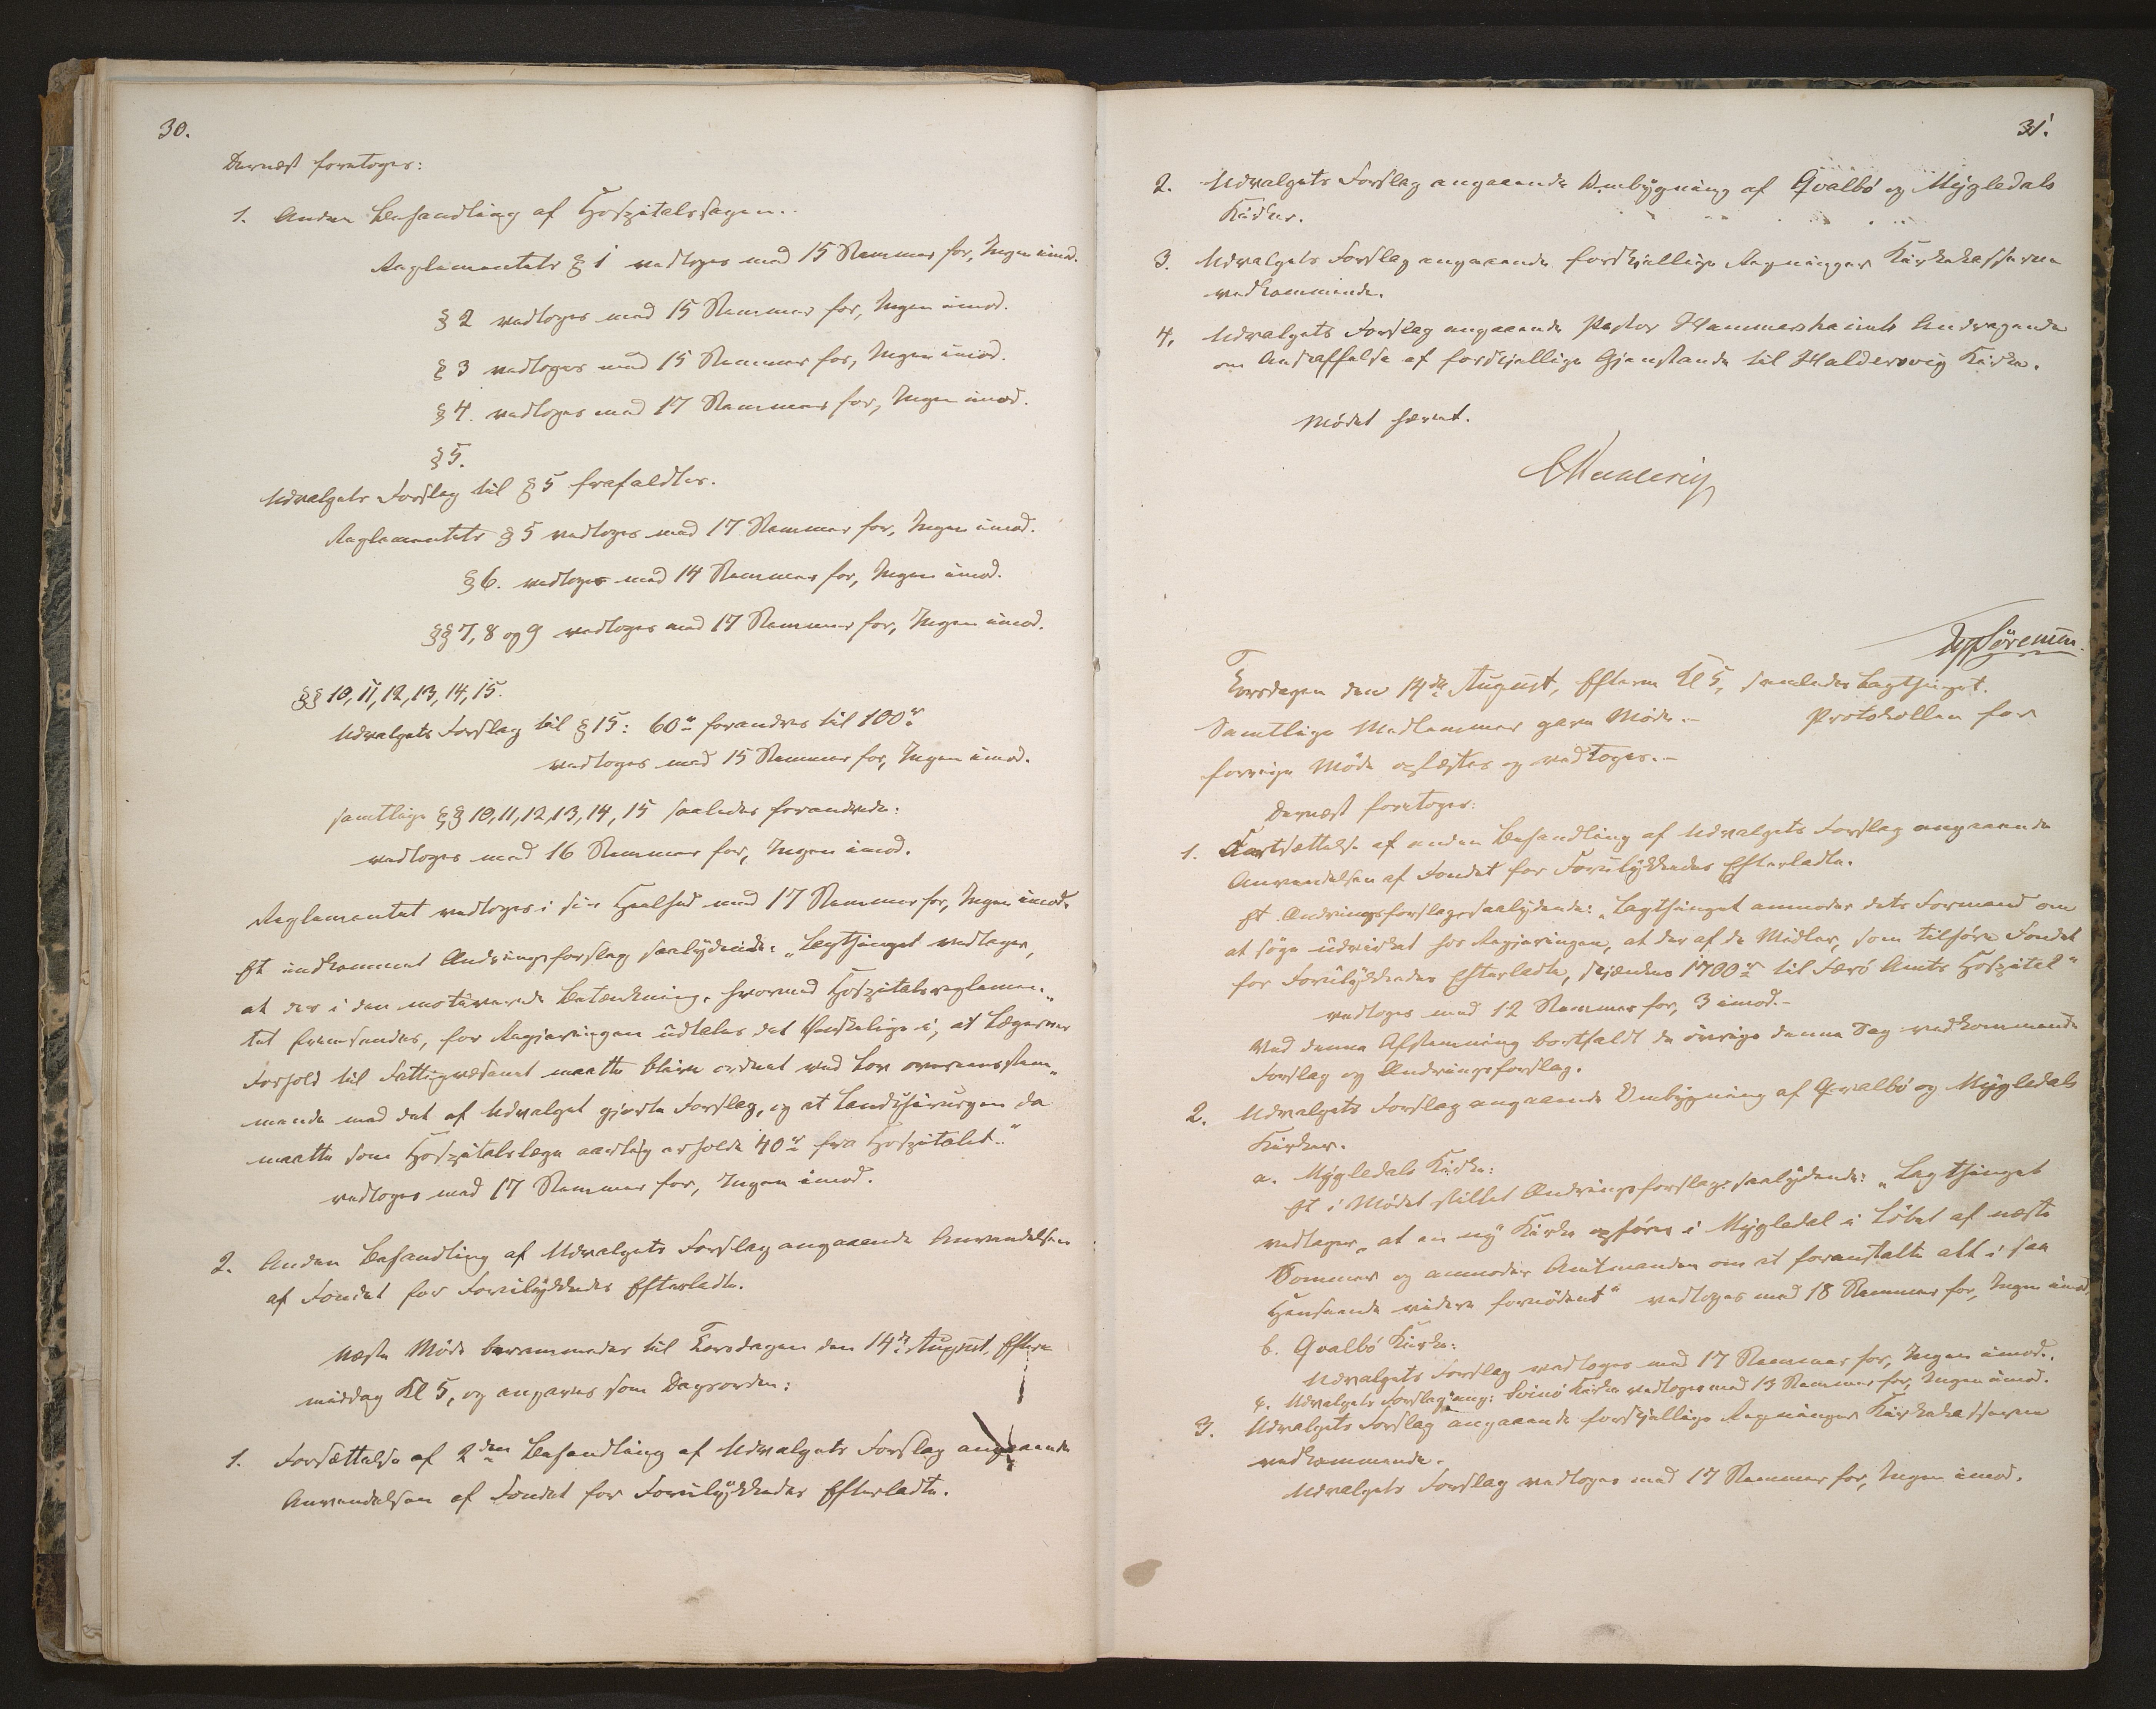 30.
Dernæst foretoges:
1. Anden Behandling af Hospitalssagen.
Reglementets § 1 vedtoges med 15 Stemmer for, Ingen imod.
§ 2 vedtoges med 15 Stemmer for, Ingen imod.
§ 3 vedtoges med 15 Stemmer for, Ingen imod.
§ 4. vedtoges med 17 Stemmer for, Ingen imod.
§ 5.
Udvalgets Forslag til § 5 frafaldtes.
Reglementets § 5 vedtoges med 17 Stemmer for, Ingen imod.
§ 6. vedtoges med 14 Stemmer for, Ingen imod.
§§ 7, 8 og 9 vedtoges med 17 Stemmer for, Ingen imod.
§§ 10, 11, 12, 13, 14, 15.
Udvalgets Forslag til § 15: 60 forandres til 100
vedtoges med 15 Stemmer for, Ingen imod.
samtlige §§ 10, 11, 12, 13, 14, 15 saaledes forandrede:
vedtoges med 16 Stemmer for, Ingen imod.
Reglementet vedtoges i sin Heelhed med 17 Stemmer for, Ingen imod.
Et indkommet Ændringsforslag saalydende: „Lagthinget vedtager,
at der i den motiverede Betænkning, hvormed Hospitalsreglemen„
tet fremsendes, for Regjeringen udtales det Ønskelige i, at Lægernes
Forhold til Fattigvæsenet maatte blive ordnet ved Lov overensstem„
mende med det af Udvalget gjorte Forslag, og at Landchirurgen da
maatte som Hospitalslæge aarlig erholde 40 fra Hospitalet."
vedtoges med 17 Stemmer for, Ingen imod.
2. Anden Behandling af Udvalgets Forslag angaaende Anvendelsen
af Fondet for Forulykkedes Efterladte.
Næste Møde berammedes til Torsdagen den 14de August, Efter
middag Kl 5, og angaves som Dagsorden:
1. Forsættelse af 2den Behandling af Udvalgets Forslag angaaende
Anvendelsen af Fondet for Forulykkedes Efterladte.
31.
2. Udvalgets Forslag angaaende Ombygning af Qvalbø og Mygledals
Kirker.
3. Udvalgets Forslag angaaende forskjellige Regninger Kirkekasserne
vedkommende.
4. Udvalgets Forslag angaaende Pastor Hammershaimbs Andragende
om Anskaffelse af forskjellige Gjenstande til Haldersvig Kirke.
Mødet hævet.
Sørensen.
Torsdagen den 14de August, Efterm Kl 5, samledes Lagthinget.
Samtlige Medlemmer gave Møde.- Protokollen for
forrige Møde oplæstes og vedtoges.-
Dernæst foretoges:
1. Fortsættelse af anden Behandling af Udvalgets Forslag angaaende
Anvendelsen af Fondet for Forulykkedes Efterladte.
Et Ændringsforslag saalydende: „Lagthinget anmoder dets Formand om
at søge udvirket hos Regjeringen, at der af de Midler, som tilhøre Fondet
for Forulykkedes Efterladte, skjænkes 1700 til Færø Amts Hospital"
vedtoges med 12 Stemmer for, 3 imod.-
Ved denne Afstemning bortfaldt de øvrige denne Sag vedkommende
Forslag og Ændringsforslag.
2. Udvalgets Forslag angaaende Ombygning af Qvalbø og Mygledals
Kirker.
a. Mygledals Kirke:
Et i Mødet stillet Ændringsforslag saalydende: „Lagthinget
vedtager, at en ny Kirke opføres i Mygledal i Løbet af næste
Sommer og anmoder Amtmanden om at foranstalte alt i saa
Henseende videre fornødent" vedtoges med 18 Stemmer for, Ingen imod.
b. Qvalbø Kirke:
Udvalgets Forslag vedtoges med 17 Stemmer for, Ingen imod.
c. Udvalgets Forslag ang: Svinø Kirke vedtoges med 13 Stemmer for, Ingen imod.
3. Udvalgets Forslag angaaende forskjellige Regninger Kirkekasserne
vedkommende.
Udvalgets Forslag vedtoges med 17 Stemmer for, Ingen imod.